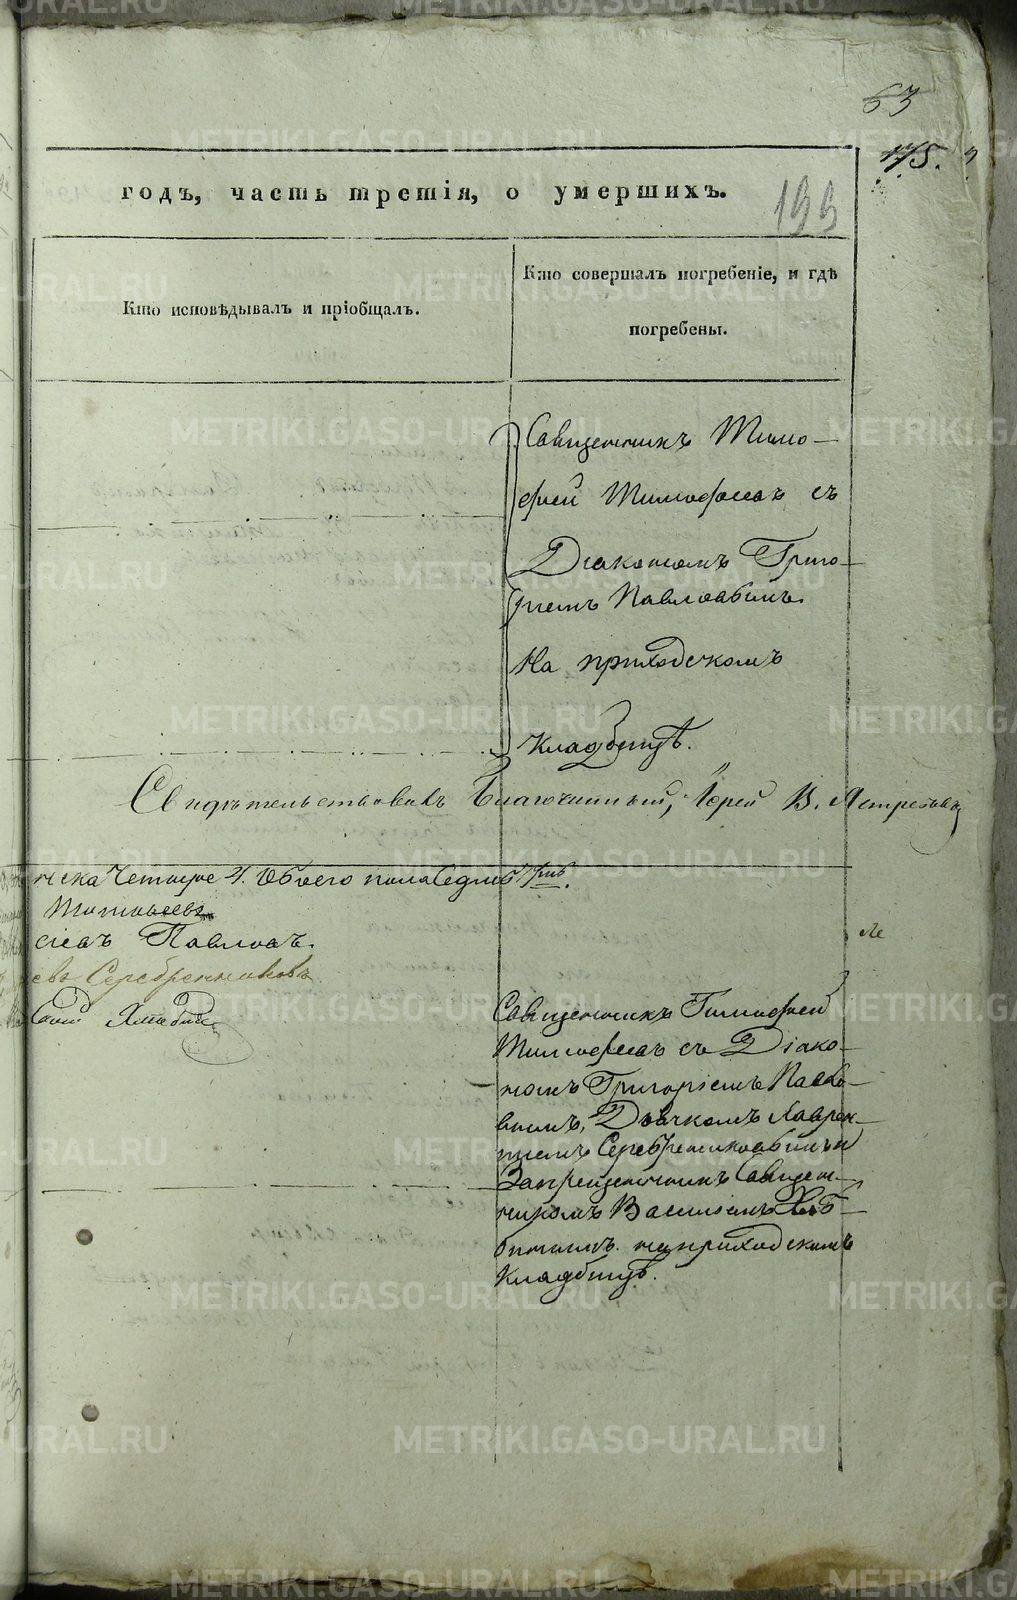 63
175.
годъ, часть третія, о умершихъ.
199
Кто исповѣдывалъ и пріобщалъ.
Кто совершалъ погребеніе, и гдѣ
погребены.
Священникъ Тимо-
фей Тимофеевъ съ
Діакономъ Григо-
ріемъ Павловымъ.
На приходскомъ
кладбищѣ.
Свидѣтельствовалъ Благочинный, Іерей В. Ястребовъ
нска Четыре 4. Обоего пола Седмь 7мь.
сіевъ Павловъ.
евъ Серебренниковъ
Священникъ Тимофей
Тимофеевъ съ Діако-
номъ Григоріемъ Павло-
вымъ, Дьячкомъ Лаврен-
тіемъ Серебренниковымъ и
Запрещеннымъ Священ-
никомъ Василіемъ
на приходскомъ
Кладбищѣ.
METRIKI.GASO-URAL.RU